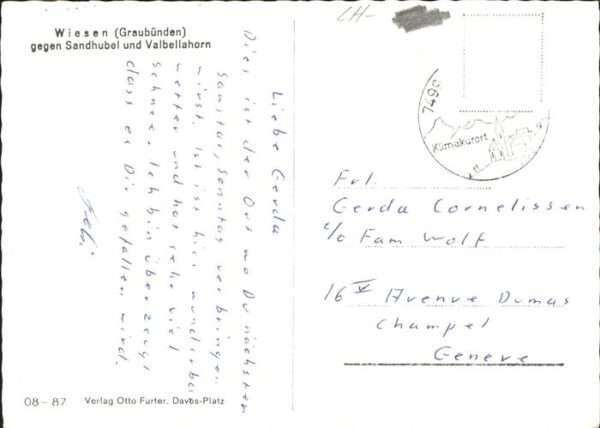 Wiesen (Graubünden)
gegen Sandhubel und Valbellahorn
Liebe Gerda
Dies ist der Ort wo Du nächsten
Samstag, Sonntag verbringen
wirst. Ist ist hier wunderbar
wetter und hat sehr viel
Schnee. Ich bin überzeugt
dass es Dir gefallen wird.
08-87 Verlag Otto Furter, Davos-Platz
CH-
749
Klimakurort
Frl.
Gerda Cornelissen
c/o Fam Wolf
16 V Avenue Dumas
Champel
Geneve